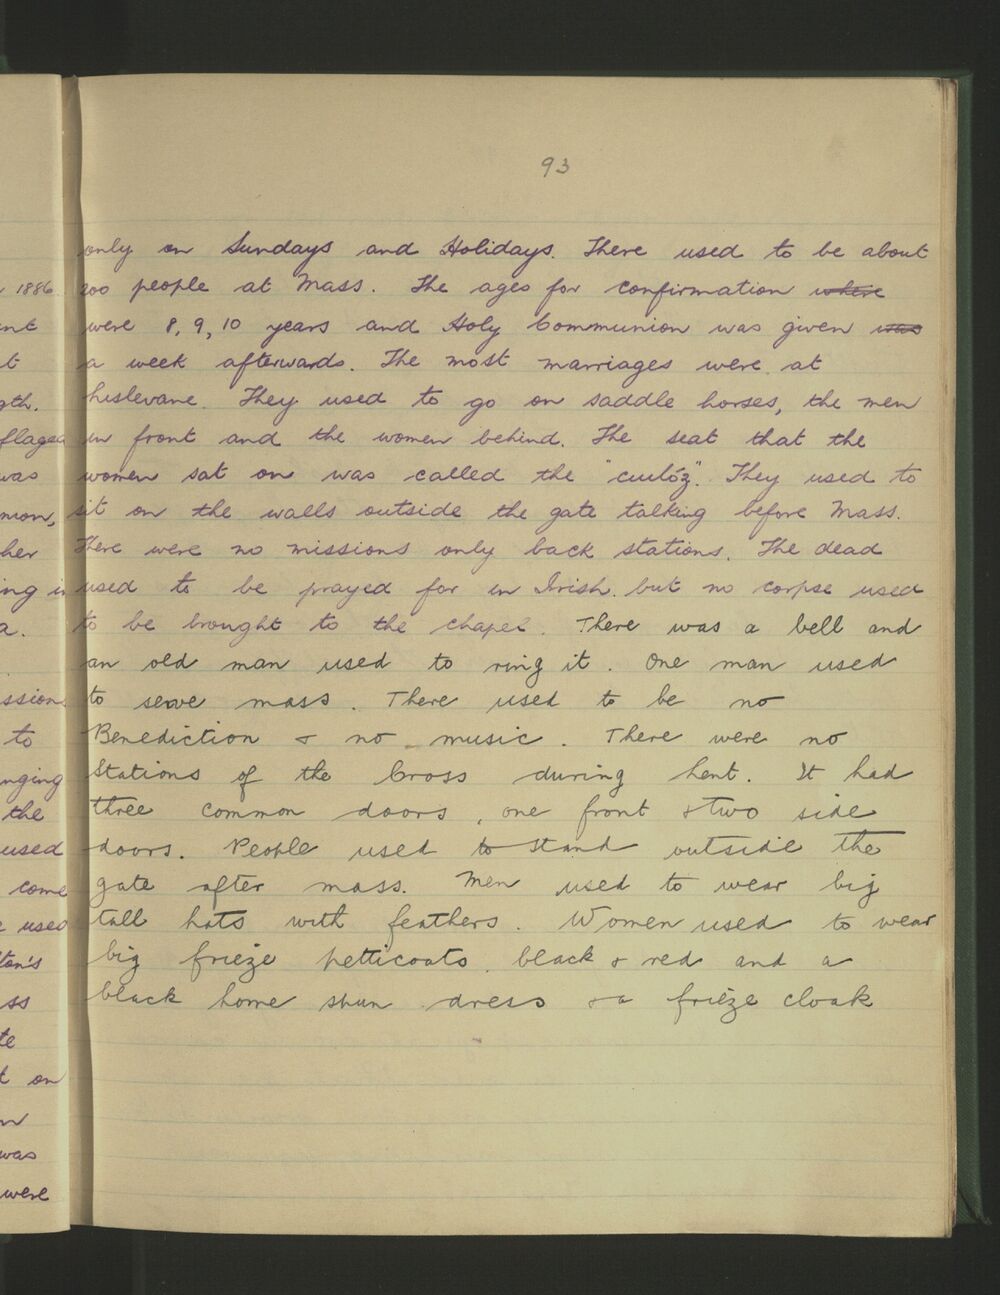 93
only on Sundays and Holidays. There used to be about
200 people at Mass. The ages for confirmation where
were 8, 9, 10 years and Holy Communion was given was
a week afterwards. The most marriages were at
They used to go on saddle horses, the men
in front and the women behind. The seat that the
women sat on was called the "culóg". They used to
sit on the walls outside the gate talking before Mass.
There were no missions only back stations. The dead
used to be prayed for in Irish. but no corpse used
to be brought to the chapel. There was a bell and
an old man used to ring it. One man used
to serve mass. There used to be no
Benediction & no music. There were no
Stations of the Cross during Lent. It had
three common doors, one front & two side
doors. People used to stand outside the
gate after mass. Men used to wear big
tall hats with feathers. Women used to wear
big frieze petticoats, black & red and a
black home spun dress & a frieze cloak
1886
gth.
flaged
was
her
ing in
a.
to
the
used
come
used
ton's
ss
on
was
were